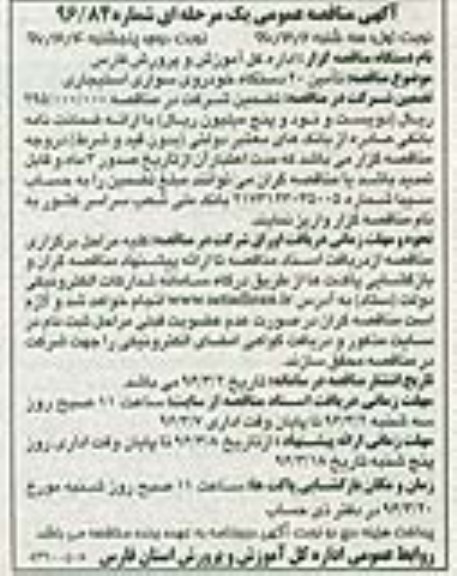 آگهی مناقصه عمومی یک مرحله ای شماره ۹۶/۸۴
نوبت اول: سه شنبه نوبت دوم: پنجشنبه
نام دستگاه مناقصه گزار: اداره کل آموزش و پرورش فارس
موضوع مناقصه: تأمین ۲۰ دستگاه خودروی سواری استیجاری
تضمین شرکت در مناقصه: تضمین شرکت در مناقصه ۲۹۵/۰۰۰/۰۰۰
ریال (دویست و نود و پنج میلیون ریال) با ارائه ضمانت نامه
بانکی صادره از بانک های معتبر دولتی (بدون قید و شرط) در وجه
مناقصه گزار می باشد که مدت اعتبار آن از تاریخ صدور ۳ ماه و قابل
تمدید باشد یا مناقصه گران می توانند مبلغ تضمین را به حساب
سیبا شماره بانک ملی شعب سراسر کشور به
نام مناقصه گزار واریز نمایند.
نحوه و مهلت زمانی دریافت برای شرکت در مناقصه: کلیه مراحل برگزاری
مناقصه از دریافت اسناد مناقصه تا ارائه پیشنهاد مناقصه گران و
بازگشایی پاکت ها از طریق درگاه سامانه تدارکات الکترونیکی
دولت (ستاد) به آدرس www.setadiran.ir انجام خواهد شد و لازم
است مناقصه گران در صورت عدم عضویت قبلی مراحل ثبت نام در
سایت مذکور و دریافت گواهی امضای الکترونیکی را جهت شرکت
در مناقصه محقق سازند.
تاریخ انتشار مناقصه در سامانه: تاریخ می باشد.
مهلت زمانی دریافت اسناد مناقصه از سایت: ساعت ۱۱ صبح روز
سه شنبه تا پایان وقت اداری
مهلت زمانی ارائه پیشنهاد: از تاریخ تا پایان وقت اداری روز
پنج شنبه تاریخ
زمان و مکان بازگشایی پاکت ها: ساعت ۱۱ صبح روز شنبه مورخ
در دفتر ذی حساب
پرداخت هزینه دو نوبت آگهی به عهده برنده مناقصه می باشد.
روابط عمومی اداره کل آموزش و پرورش استان فارس